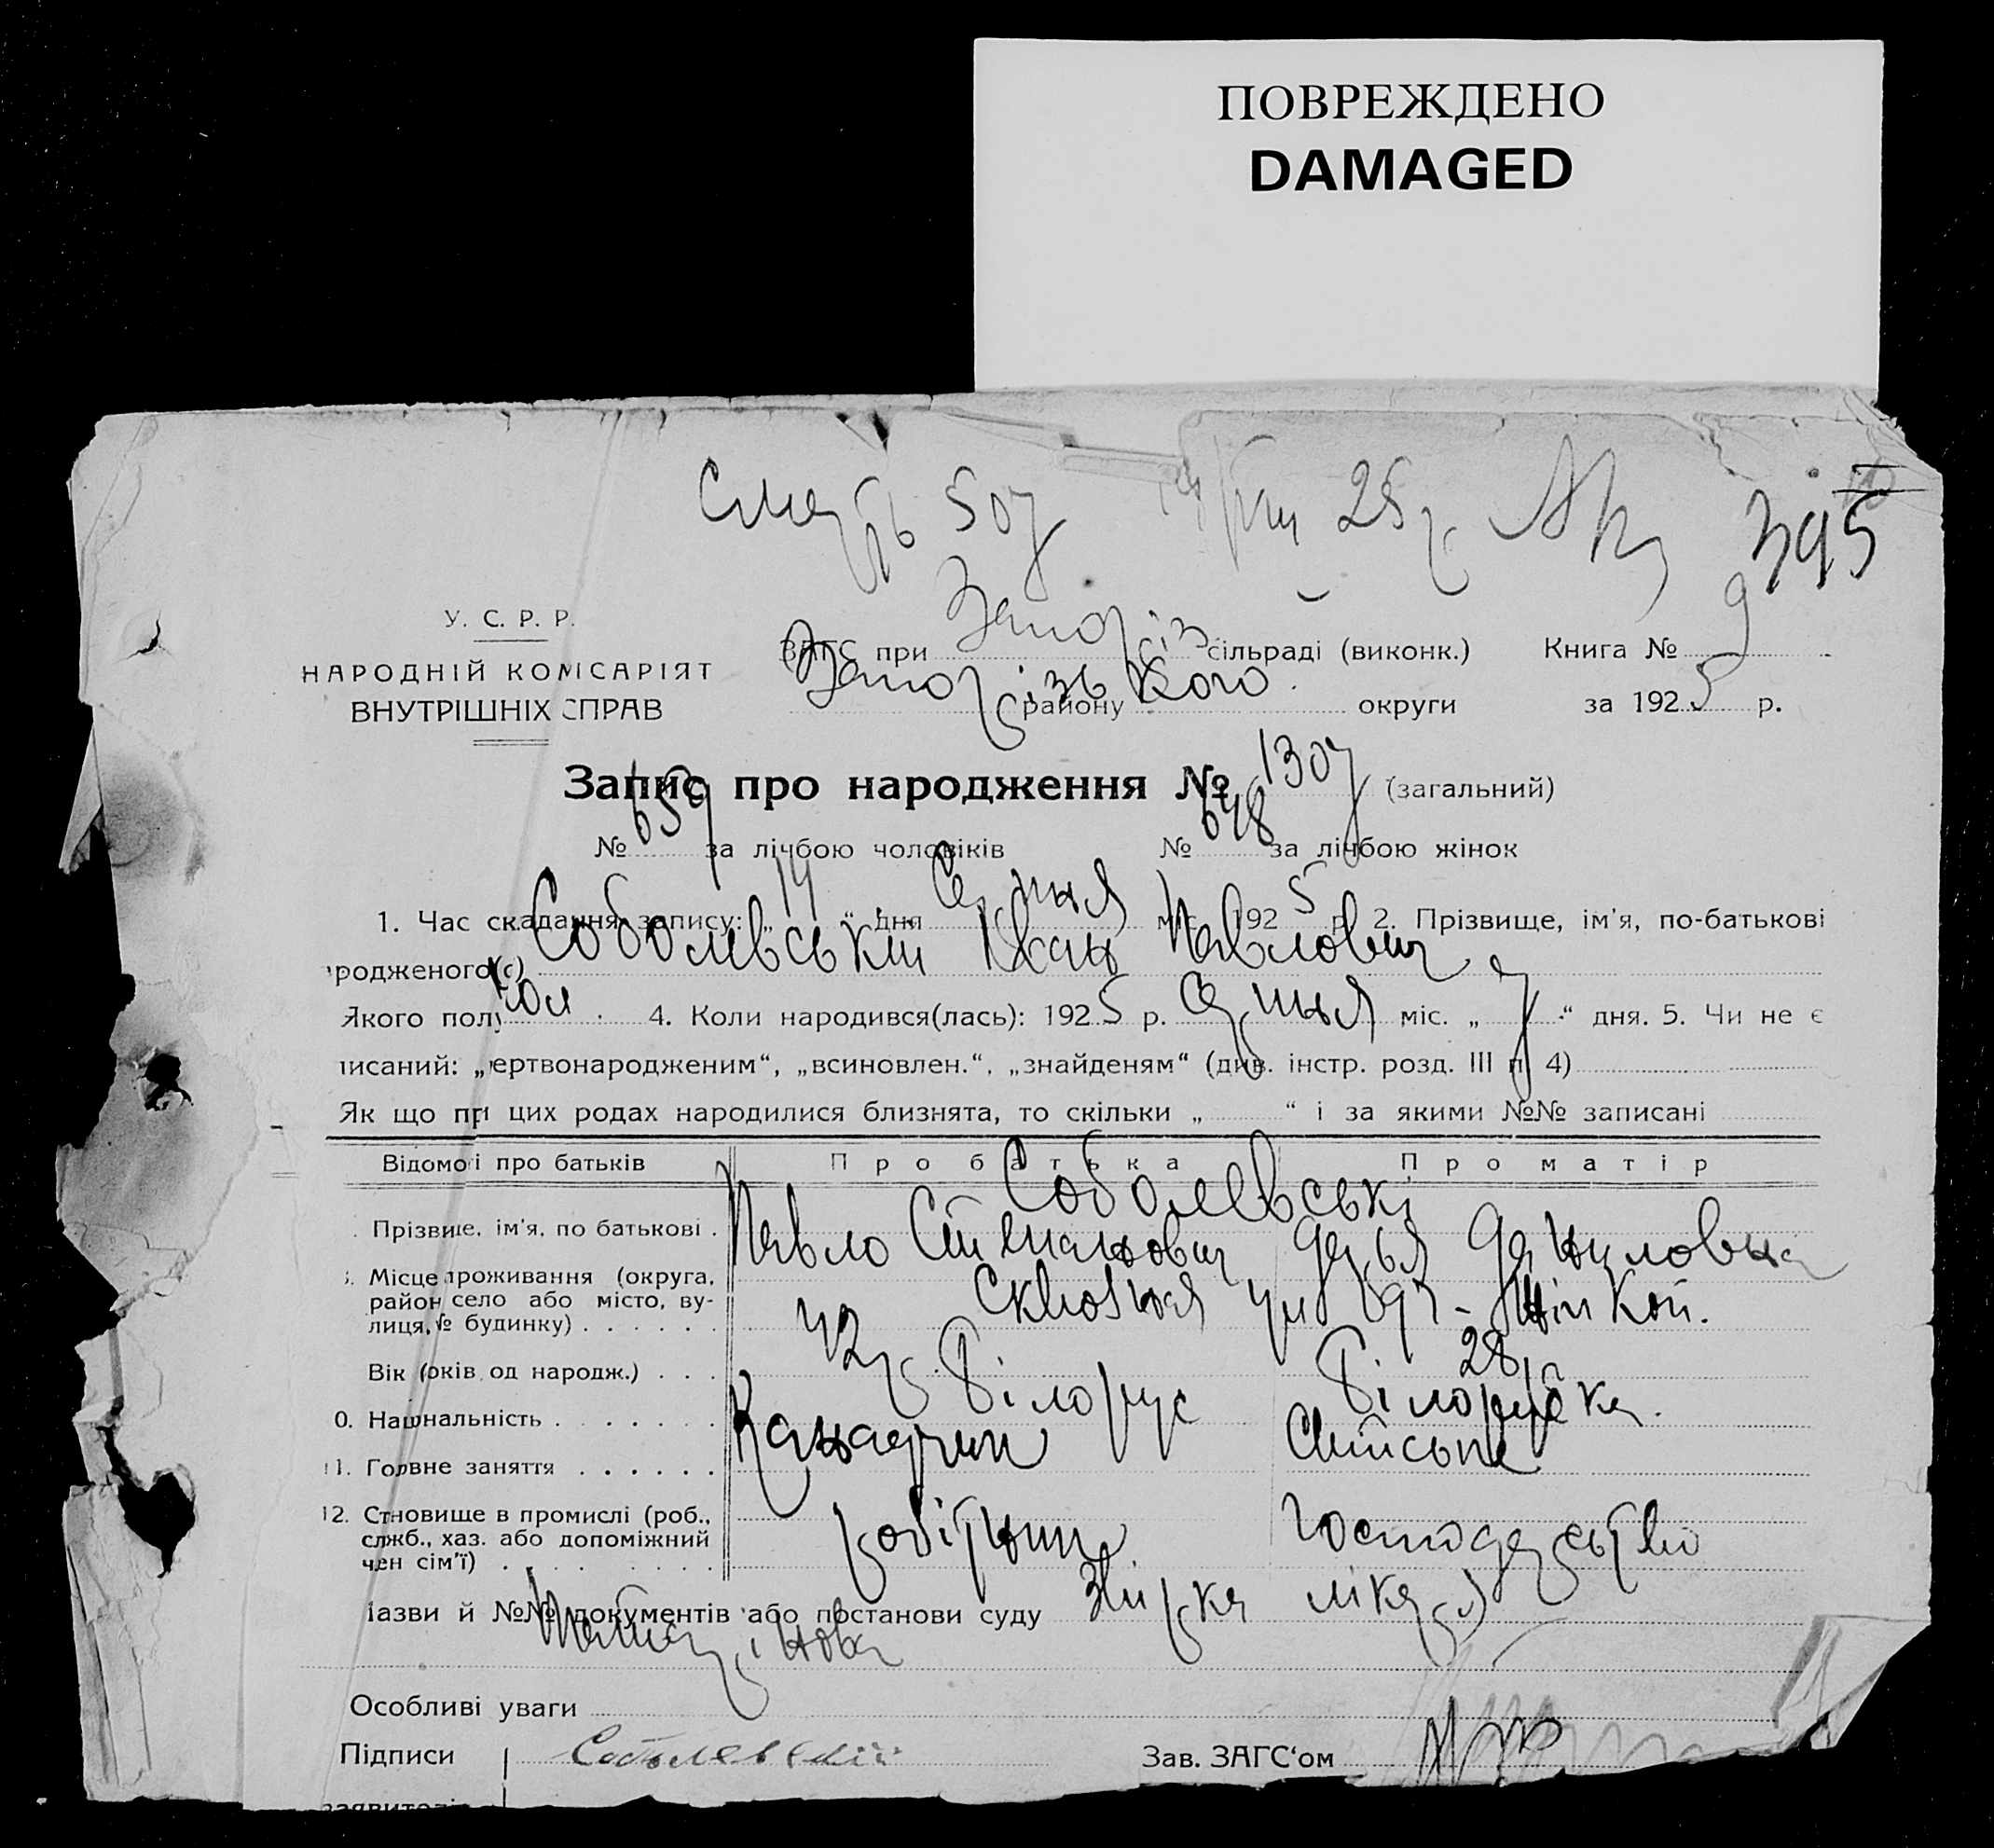 ПОВРЕЖДЕНО
DAMAGED
Смерть 507 25 р.
395
У. С. Р. Р.
НАРОДНІЙ КОМІСАРІЯТ
ВНУТРІШНІХ СПРАВ
ЗАГС при Запоріз сільраді (виконк.) Книга № 9
Запорізького району округи за 1925 р.
Запис про народження № 1307 (загальний)
№ 659 за лічбою чоловіків № 648 за лічбою жінок
1. Час складання запису: „ 14 “ дня Серпня міс. 1925 р. 2. Прізвище, ім'я, по-батькові
родженого(ї) Соболєвський Іван Павлович
Якого полу чол. 4. Коли народився(лась): 1925 р. Серпня міс. „ 7 “ дня. 5. Чи не є
писаний: „мертвонародженим“, „всиновлен.“, „знайденям“ (див. інстр. розд. III п. 4)
Як що при цих родах народилися близнята, то скільки „ “ і за якими №№ записані
Відомоі про батьків Про батька Про матір
Соболєвські
Прізвище, ім'я, по батькові Павло Степанович Дарья Даниловна
Місце проживання (округа, район село або місто, вулиця, № будинку) Сквозная ул
Вік (років од народж.) 42 р. 28 р.
10. Національність Білорус Білоруска
11. Головне заняття Хатнє
12. Становище в промислі (роб., служб., хаз. або допоміжний член сім'ї) робітник господарство
Назви й №№ документів або постанови суду Звірка лікаря
Особливі уваги
Підписи Соболевский Зав. ЗАГС‘ом
заявителів